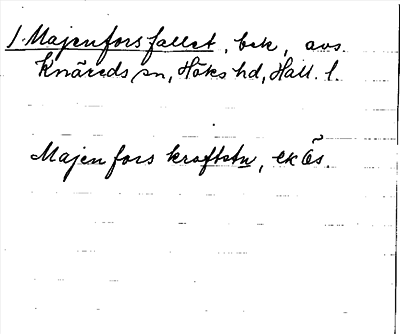 1. Majenforsfallet, bek, avs.
Knäreds sn, Höks hd, Hall. l.
Majenfors kraftstn, ek Ös.